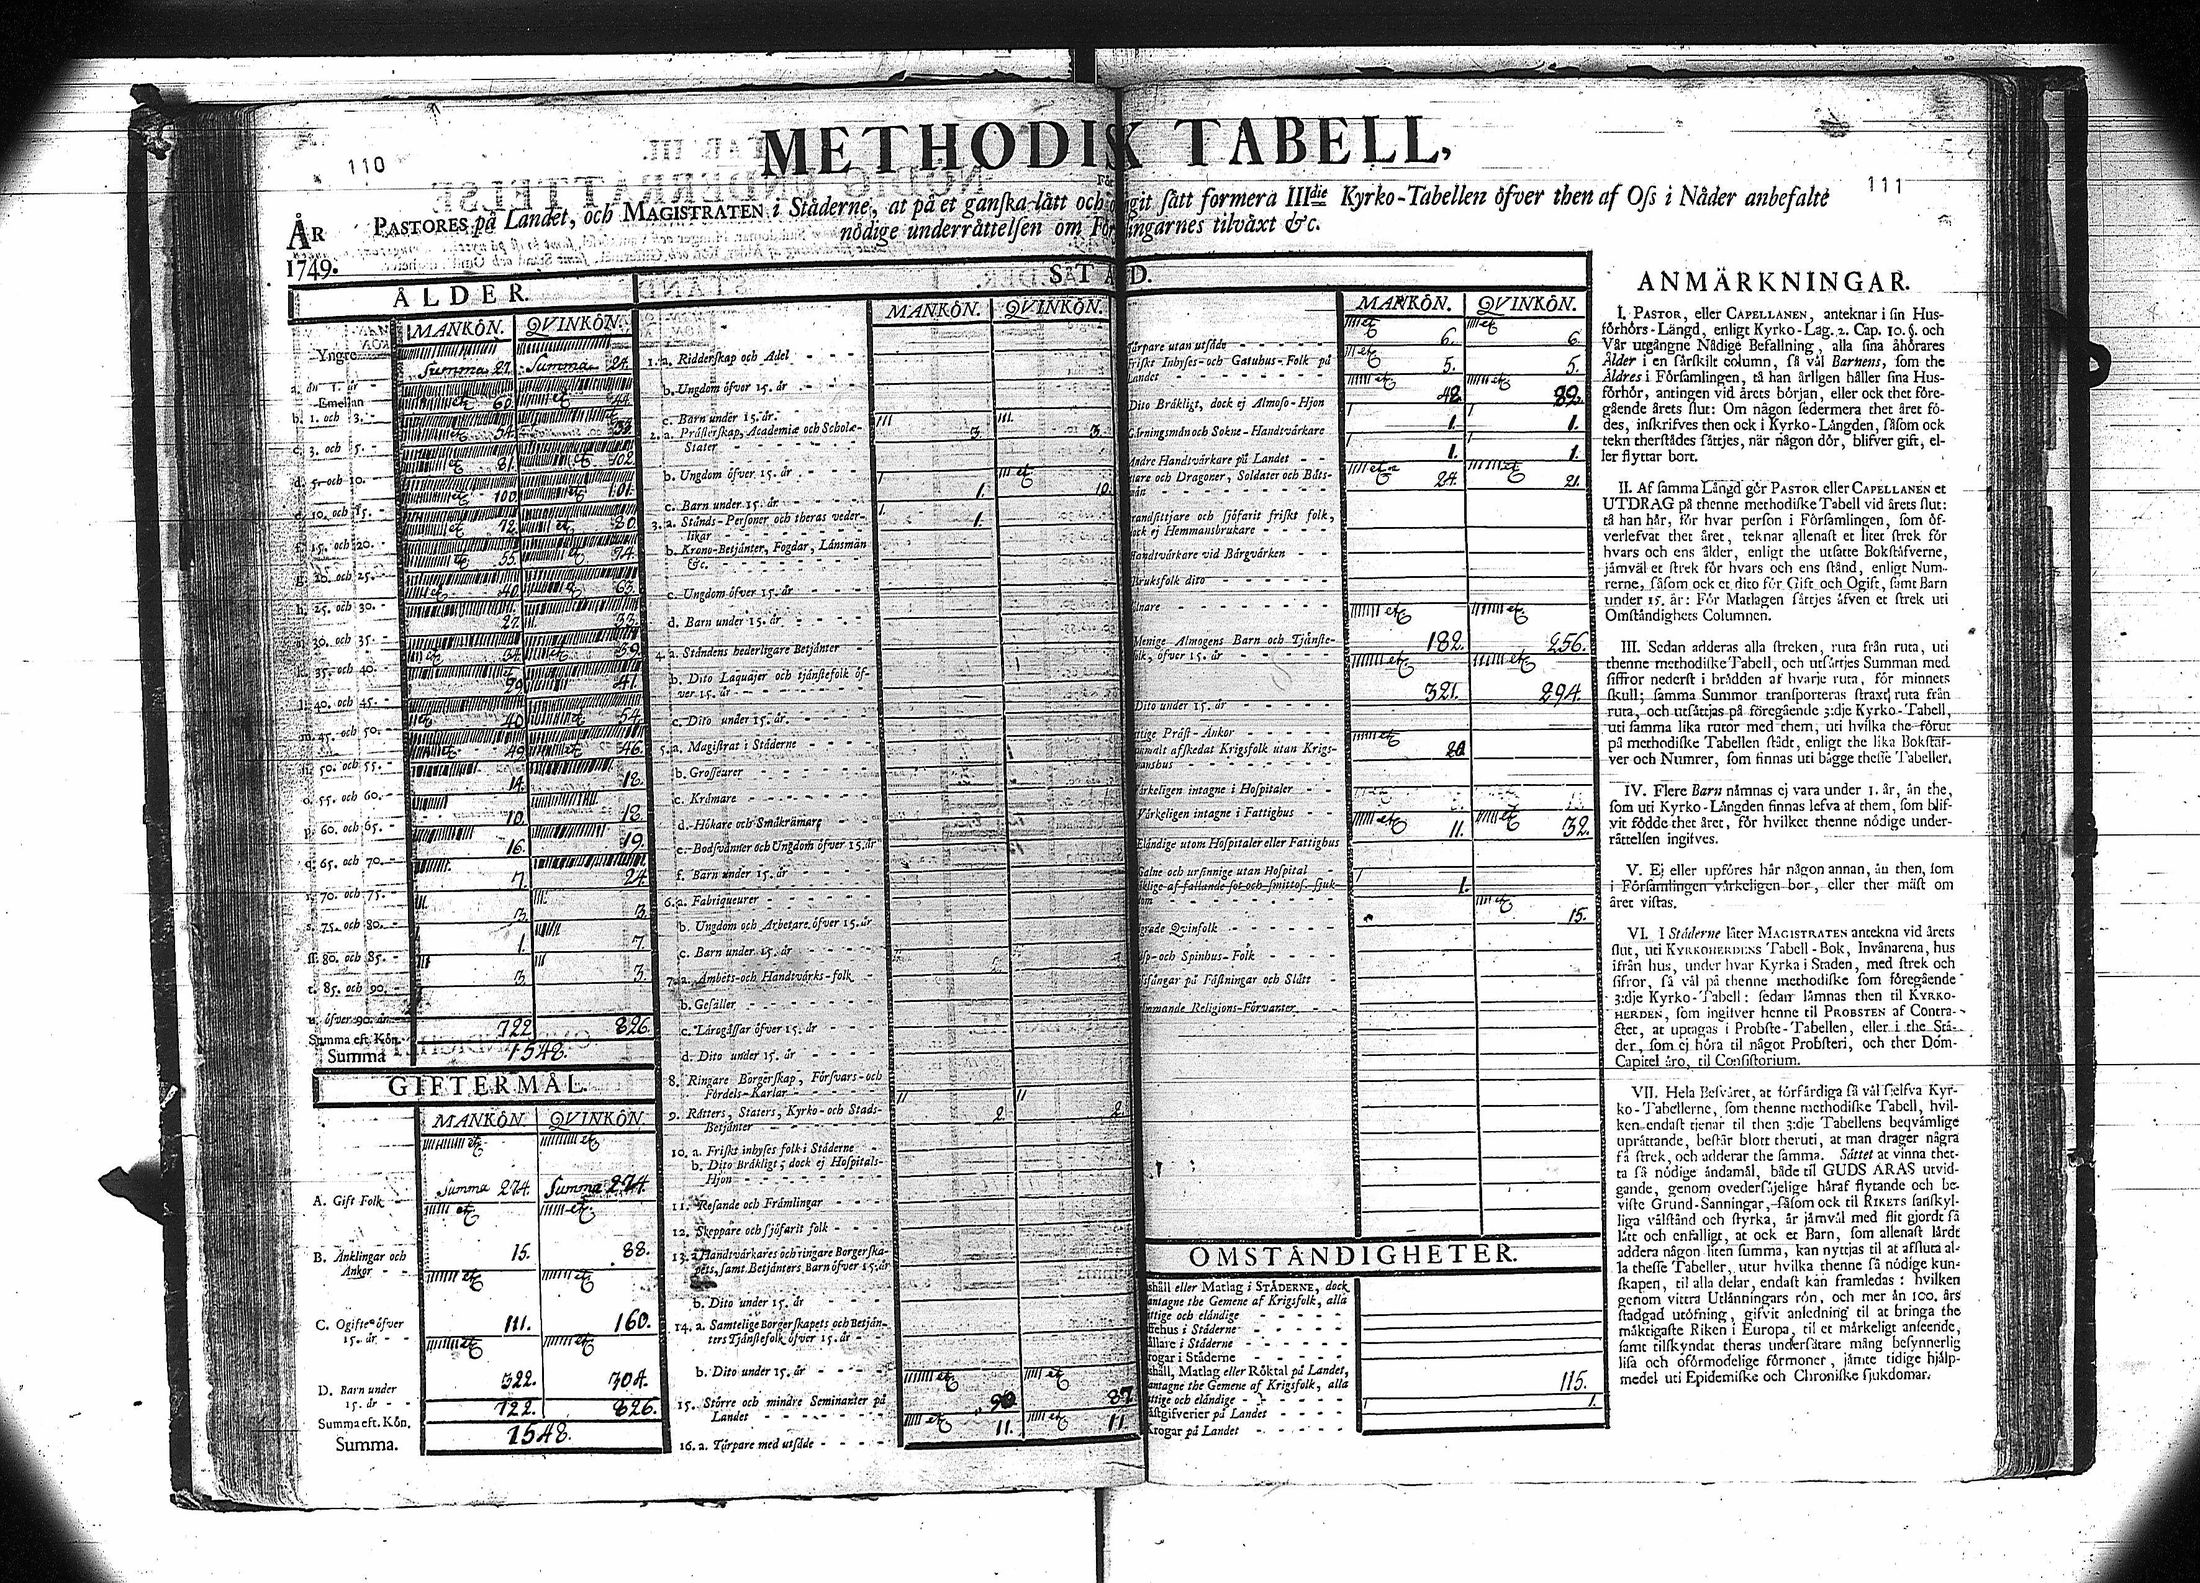 110
111
METHODISK TABELL,
ÅR
1749.
PASTORES på Landet, och MAGISTRATEN i Städerne, at på et ganska lätt och sätt formera IIIdie Kyrko-Tabellen öfver then af Oss i Nåder anbefalte
nödige underrättelsen om Församlingarnes tilväxt &c.
ÅLDER.
MANKÖN. QVINKÖN.
Yngre
än 1. år Summa 21. Summa 24.
Emellan
b. 1. och 3. etc 60. etc 44.
c. 3. och 5. etc 54.
d. 5. och 10. etc 81. etc 102.
e. 10. och 15. etc 100. etc 101.
f. 15. och 20. etc 72. etc 80.
g. 20. och 25. etc 55. etc 74.
h. 25. och 30. etc 40. etc 63.
i. 30. och 35. 27. 33.
k. 35. och 40. etc 34. etc 39.
l. 40. och 45. 29. 41.
m. 45. och 50. etc 40. etc 54.
n. 50. och 55. etc 49. etc 46.
o. 55. och 60. 14. 18.
p. 60. och 65. 10. 18.
q. 65. och 70. 16. 19.
r. 70. och 75. 7. 24.
s. 75. och 80. 3. 3.
ſſ. 80. och 85. 1. 7.
t. 85. och 90. 3. 3.
u. öfver 90. år
Summa eft. Kön. 722. 826.
Summa 1548.
GIFTERMÅL.
MANKÖN. QVINKÖN.
A. Gift Folk Summa 274. Summa 274.
B. Änklingar och
Änkor 15. 88.
C. Ogifte öfver
15. år 111. 160.
D. Barn under
15. år 322. 304.
Summa eft. Kön. 722. 826.
Summa. 1548.
STÅND.
MANKÖN. QVINKÖN.
1. a. Ridderskap och Adel
b. Ungdom öfver 15. år
c. Barn under 15. år.
2. a. Prästerskap, Academiæ och Scholæ-
Stater 3. 3.
b. Ungdom öfver 15. år 1. 10.
c. Barn under 15. år 1.
3. a. Stånds-Personer och theras veder-
likar
b. Krono-Betjänter, Fogdar, Länsmän
&c.
c. Ungdom öfver 15. år
d. Barn under 15. år
4. a. Ståndens hederligare Betjänter
b. Dito Laquajer och tjänstefolk öf-
ver 15. år
c. Dito under 15. år.
5. a. Magistrat i Städerne
b. Grosseurer
c. Krämare
d. Hökare och Småkrämare
e. Bodsvänner och Ungdom öfver 15. år
f. Barn under 15. år
6. a. Fabriqueurer
b. Ungdom och Arbetare öfver 15. år
c. Barn under 15. år
7. a. Ämbets- och Handtvärks-folk
b. Gesäller
c. Lärogåssar öfver 15. år
d. Dito under 15. år
8. Ringare Borgerskap, Försvars- och
Fördels-Karlar
9. Rätters, Staters, Kyrko- och Stads-
Betjänter 2. 2.
10. a. Friskt inhyses folk i Städerne
b. Dito Bräkligt; dock ej Hospitals-
Hjon
11. Resande och Främlingar
12. Skeppare och sjöfarit folk
13. a. Handtvärkares och ringare Borgerska-
pets, samt Betjänters Barn öfver 15. år
b. Dito under 15. år
14. a. Samtelige Borgerskapets och Betjän-
ters Tjänstefolk öfver 15. år
b. Dito under 15. år
15. Större och mindre Seminarter på
Landet 90. 87.
16. a. Tårpare med utsäde 11. 11.
MANKÖN. QVINKÖN.
Tårpare utan utsäde 6. 6.
Friskt Inhyses- och Gatuhus-Folk på
Landet 5. 5.
Dito Bräkligt, dock ej Almoso-Hjon 48.
Gärningsmän och Sokne-Handtvärkare 1. 1.
Andre Handtvärkare på Landet 1. 1.
tare och Dragoner, Soldater och Båts-
män 24. 21.
randsittjare och sjöfarit friskt folk,
ock ej Hemmansbrukare
Handtvärkare vid Bärgvärken
Bruksfolk dito
Menige Almogens Barn och Tjänste-
folk, öfver 15. år 182. 256.
Dito under 15. år 321. 294.
tige Präst-Änkor
Gammalt afskedat Krigsfolk utan Krigs-
manshus
Värkeligen intagne i Hospitaler
Värkeligen intagne i Fattighus
Eländige utom Hospitaler eller Fattighus 11. 32.
Galne och ursinnige utan Hospital
äklige af fallande sot och smittos. sjuk-
dom 1.
Qvinfolk 15.
Rasp- och Spinhus-Folk
fångar på Fästningar och Slått
främmande Religions-Förvanter
OMSTÄNDIGHETER.
shåll eller Matlag i STÄDERNE, dock
antagne the Gemene af Krigsfolk, alla
ttige och eländige
ffehus i Städerne
ällare i Städerne
rogar i Städerne
shåll, Matlag eller Röktal på Landet,
antagne the Gemene af Krigsfolk, alla
ttige och eländige 115.
ästgifverier på Landet 1.
Krogar på Landet
ANMÄRKNINGAR.
I. PASTOR, eller CAPELLANEN, anteknar i sin Hus-
förhörs-Längd, enligt Kyrko-Lag. 2. Cap. 10. §. och
Vår utgångne Nådige Befallning, alla sina åhörares
Ålder i en särskilt column, så väl Barnens, som the
Äldres i Församlingen, tå han årligen håller sina Hus-
förhör, antingen vid årets början, eller ock thet före-
gående årets slut: Om någon sedermera thet året fö-
des, inskrifves then ock i Kyrko-Längden, såsom ock
tekn therstädes sättjes, när någon dör, blifver gift, el-
ler flyttar bort.
II. Af samma Längd gör PASTOR eller CAPELLANEN et
UTDRAG på thenne methodiske Tabell vid årets slut:
tå han här, för hvar person i Församlingen, som öf-
verlefvat thet året, teknar allenast et litet strek för
hvars och ens ålder, enligt the utsatte Bokstäfverne,
jämväl et strek för hvars och ens stånd, enligt Num-
rerne, såsom ock et dito för Gift och Ogift, samt Barn
under 15. år: För Matlagen sättjes äfven et strek uti
Omständighets Columnen.
III. Sedan adderas alla streken, ruta från ruta, uti
thenne methodiske Tabell, och utsättjes Summan med
siffror nederst i brädden af hvarje ruta, för minnets
skull; samma Summor transporteras straxt ruta från
ruta, och utsättjas på föregående 3:dje Kyrko-Tabell,
uti samma lika rutor med them, uti hvilka the förut
på methodiske Tabellen städt, enligt the lika Bokstäf-
ver och Numrer, som finnas uti bägge thesse Tabeller.
IV. Flere Barn nämnas ej vara under 1. år, än the,
som uti Kyrko-Längden finnas lefva af them, som blif-
vit födde thet året, för hvilket thenne nödige under-
rättelsen ingifves.
V. Ej eller upföres här någon annan, än then, som
i Församlingen värkeligen bor, eller ther mäst om
året vistas.
VI. I Städerne låter MAGISTRATEN antekna vid årets
slut, uti KYRKOHERDENS Tabell-Bok, Invånarena, hus
ifrån hus, under hvar Kyrka i Staden, med strek och
sifror, så väl på thenne methodiske som föregående
3:dje Kyrko-Tabell: sedan lämnas then til KYRKO-
HERDEN, som ingifver henne til PROBSTEN af Contra-
ctet, at uptagas i Probste-Tabellen, eller i the Stä-
der, som ej höra til något Probsteri, och ther Dom-
Capitel äro, til Consistorium.
VII. Hela Besväret, at förfärdiga så väl sjelfva Kyr-
ko-Tabellerne, som thenne methodiske Tabell, hvil-
ken endast tjenar til then 3:dje Tabellens beqvämlige
uprättande, består blott theruti, at man drager några
få strek, och adderar the samma. Sättet at vinna thet-
ta så nödige ändamål, både til GUDS ÄRAS utvid-
gande, genom ovedersäjelige häraf flytande och be-
viste Grund-Sanningar, såsom ock til RIKETS sanskyl-
liga välstånd och styrka, är jämväl med flit gjordt så
lätt och enfalligt, at ock et Barn, som allenast lärdt
addera någon liten summa, kan nyttjas til at affluta al-
la thesse Tabeller, utur hvilka thenne så nödige kun-
skapen, til alla delar, endast kan framledas: hvilken
genom vittra Utlänningars rön, och mer än 100. års
stadgad utöfning, gifvit anledning til at bringa the
mäktigaste Riken i Europa, til et märkeligt anseende,
samt tilskyndat theras undersåtare mång besynnerlig
lisa och oförmodelige förmoner, jämte tidige hjälp-
medel uti Epidemiske och Chroniske sjukdomar.